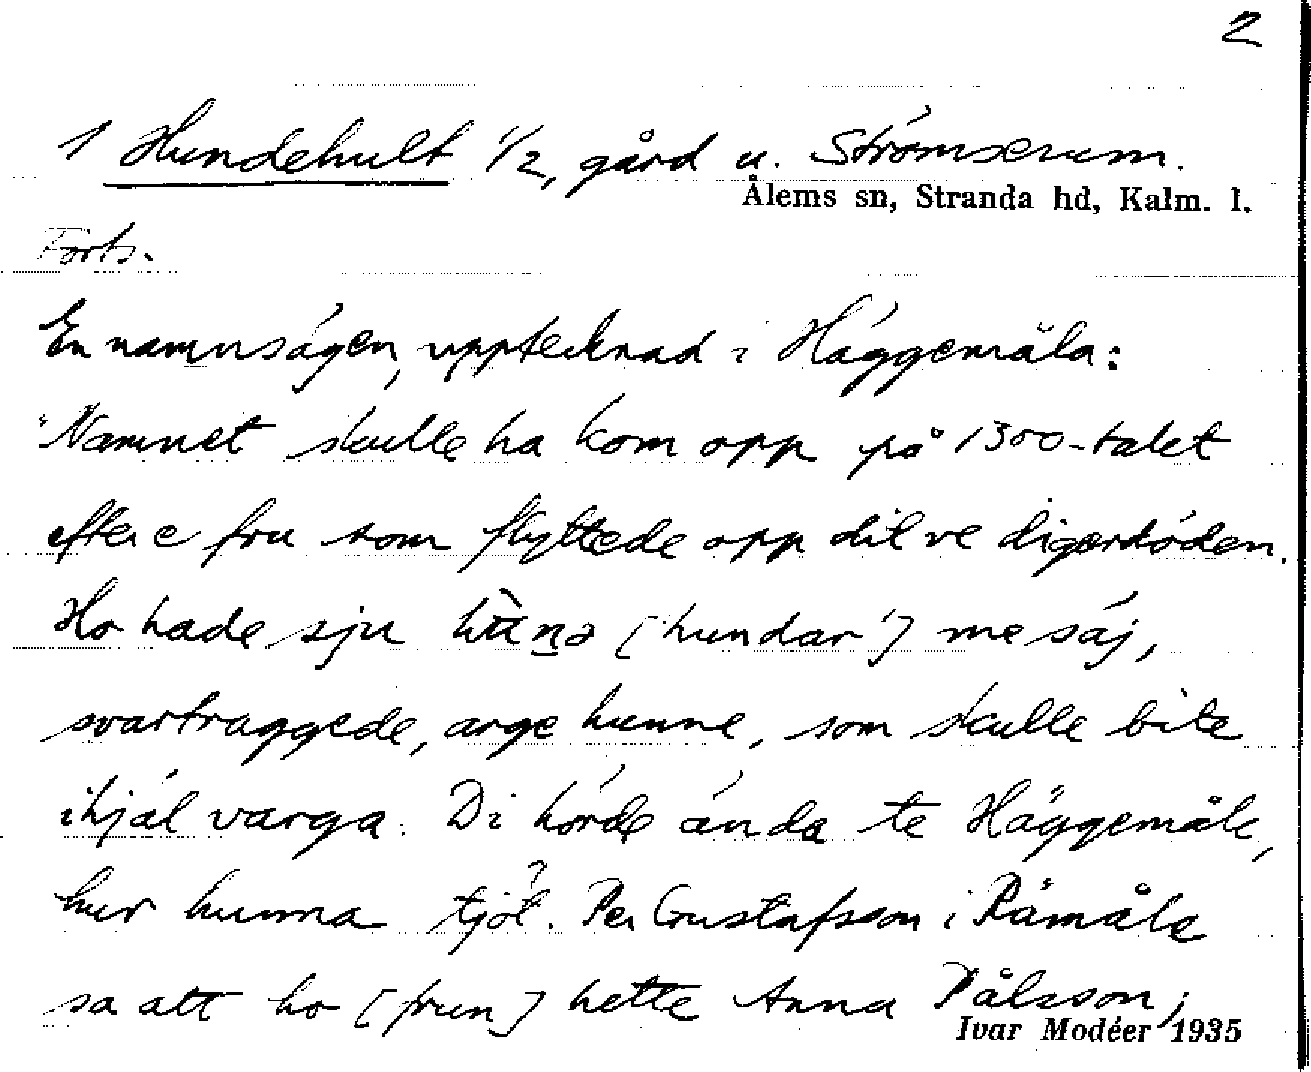 2
1 Hundehult 1/2, gård u. Strömserum.
Ålems sn, Stranda hd, Kalm. l.
Forts.
En namnsägen, upptecknad i Häggemåla:
"Namnet skulle ha kom opp på 1300-talet
efter e fru som flyttede opp dit ve digerdöden.
Ho hade sju [hundar'] me säj,
svartraggede, arge hunne, som skulle bite
ihjäl varga. Di hörde ända te Häggemåle,
hur hunna tjöt. Per Gustafsson i Råmåla
sa att ho [frun] hette Anna Pålsson;
Ivar Modéer 1935